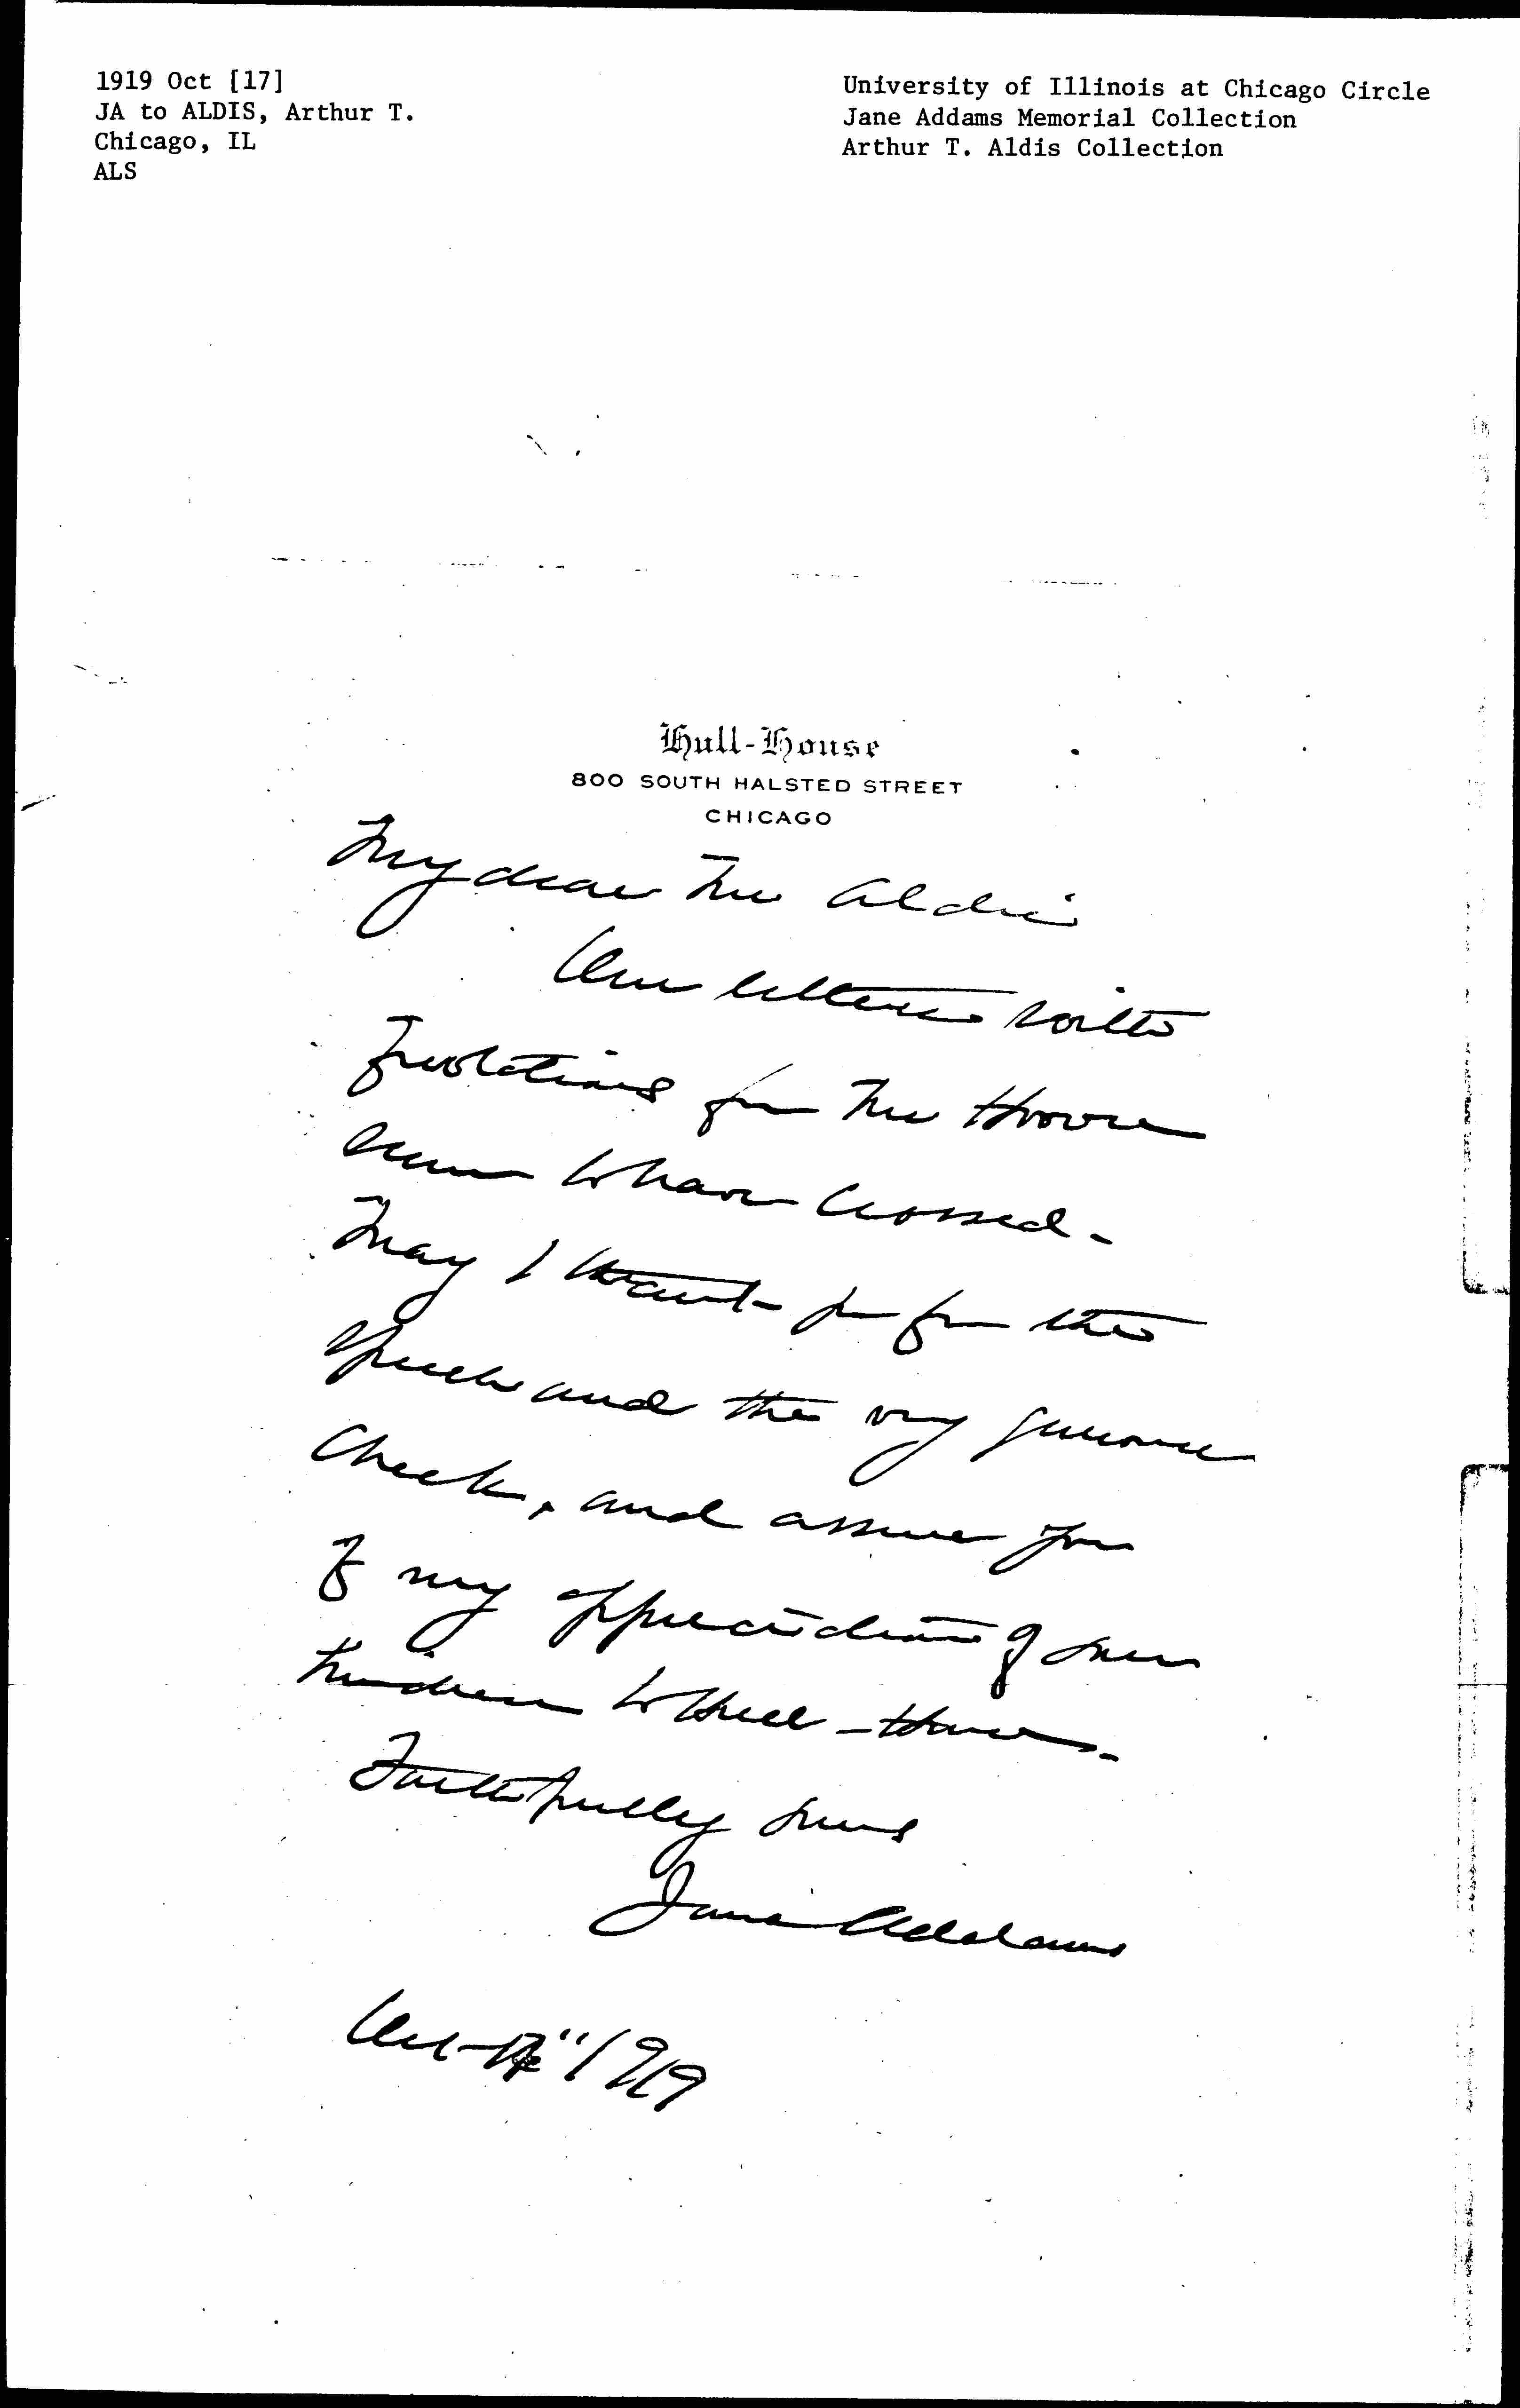 1919 Oct [17]
JA to ALDIS, Arthur T.
Chicago, IL
ALS
University of Illinois at Chicago Circle
Jane Addams Memorial Collection
Arthur T. Aldis Collection
Hull-House
800 SOUTH HALSTED STREET
CHICAGO
My dear Mr Aldis
Our letters with
quotations from Mr Hoover
seem to have crossed -
May I thank you for the
speech and the very generous
check, and assure you
of my appreciation of your
kindness to Hull-House.
Faithfully yours
Jane Addams
Oct 17" 1919